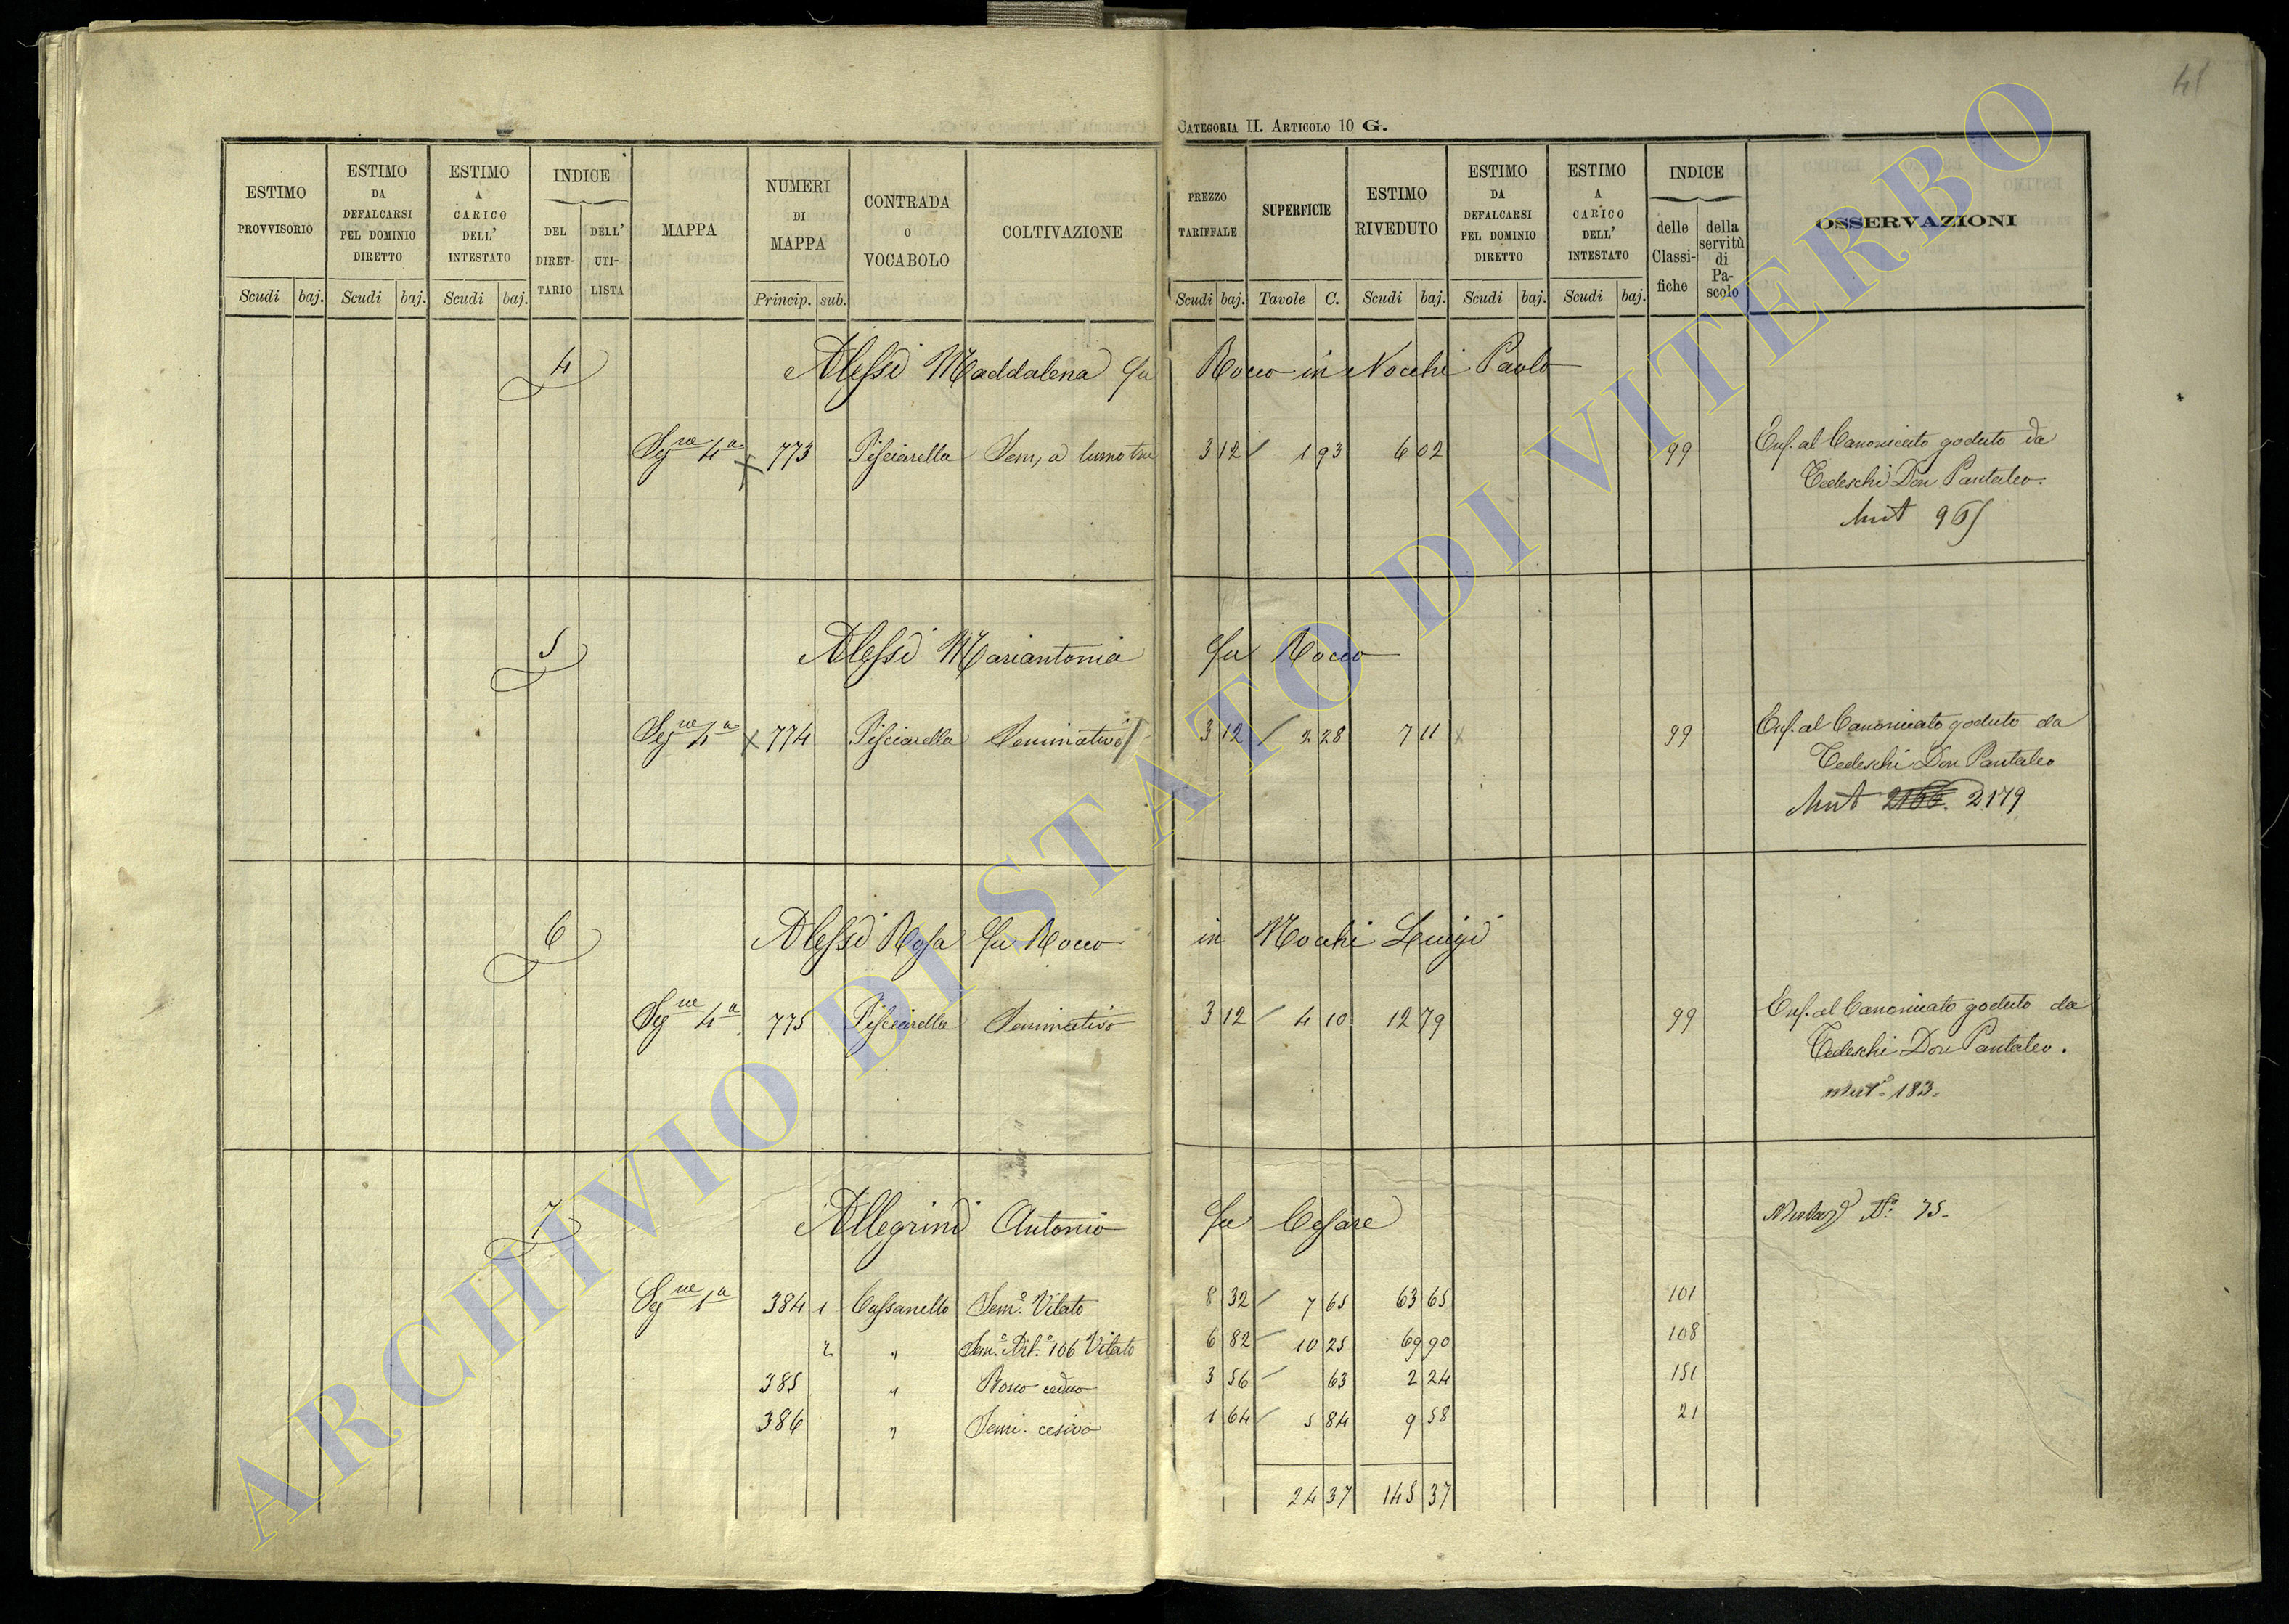 41
CATEGORIA II. ARTICOLO 10 G.
ESTIMO PROVVISORIO
ESTIMO DA DEFALCARSI PEL DOMINIO DIRETTO
ESTIMO A CARICO DELL' INTESTATO
INDICE
DEL DIRET-TARIO
DELL' UTI-LISTA
MAPPA
NUMERI DI MAPPA
CONTRADA O VOCABOLO
COLTIVAZIONE
PREZZO TARIFFALE
SUPERFICIE
ESTIMO RIVEDUTO
ESTIMO DA DEFALCARSI PEL DOMINIO DIRETTO
ESTIMO A CARICO DELL' INTESTATO
INDICE
delle Classi-fiche
della servitù di Pa-scolo
OSSERVAZIONI
Scudi baj. Scudi baj. Scudi baj. Princip. sub. Scudi baj. Tavole C. Scudi baj. Scudi baj. Scudi baj.
4 Alessi Maddalena fu Rocco in Nocchi Paolo
Segne 4a 773 Pisciarella Sem, a 3 12 1 93 6 02 99 Enf. al Canonicato goduto da
Tedeschi Don Pantaleo.
Mut 965
5 Alessi Mariantonia fu Rocco
Segne 4a x 774 Pisciarella Seminativo 3 12 2 28 7 11 x 99 Enf. al Canonicato goduto da
Tedeschi Don Pantaleo
Mut 2166. 2179
6 Alessi Rosa fu Rocco in Nocchi Luigi
Segne 4a 775 Pisciarella Seminativo 3 12 4 10 12 79 99 Enf. al Canonicato goduto da
Tedeschi Don Pantaleo.
Mut.o 183.
7 Allegrini Antonio fu Cesare No. 75.
Segne 1a 384 1 Cassanello Sem.o Vitato 8 32 7 65 63 65 101
2 " Sem.o Art.o 106 Vitato 6 82 10 25 69 90 108
385 " Bosco ceduo 3 56 63 2 24 151
386 " Semi. cesivo 1 64 5 84 9 58 21
24 37 145 37
ARCHIVIO DI STATO DI VITERBO